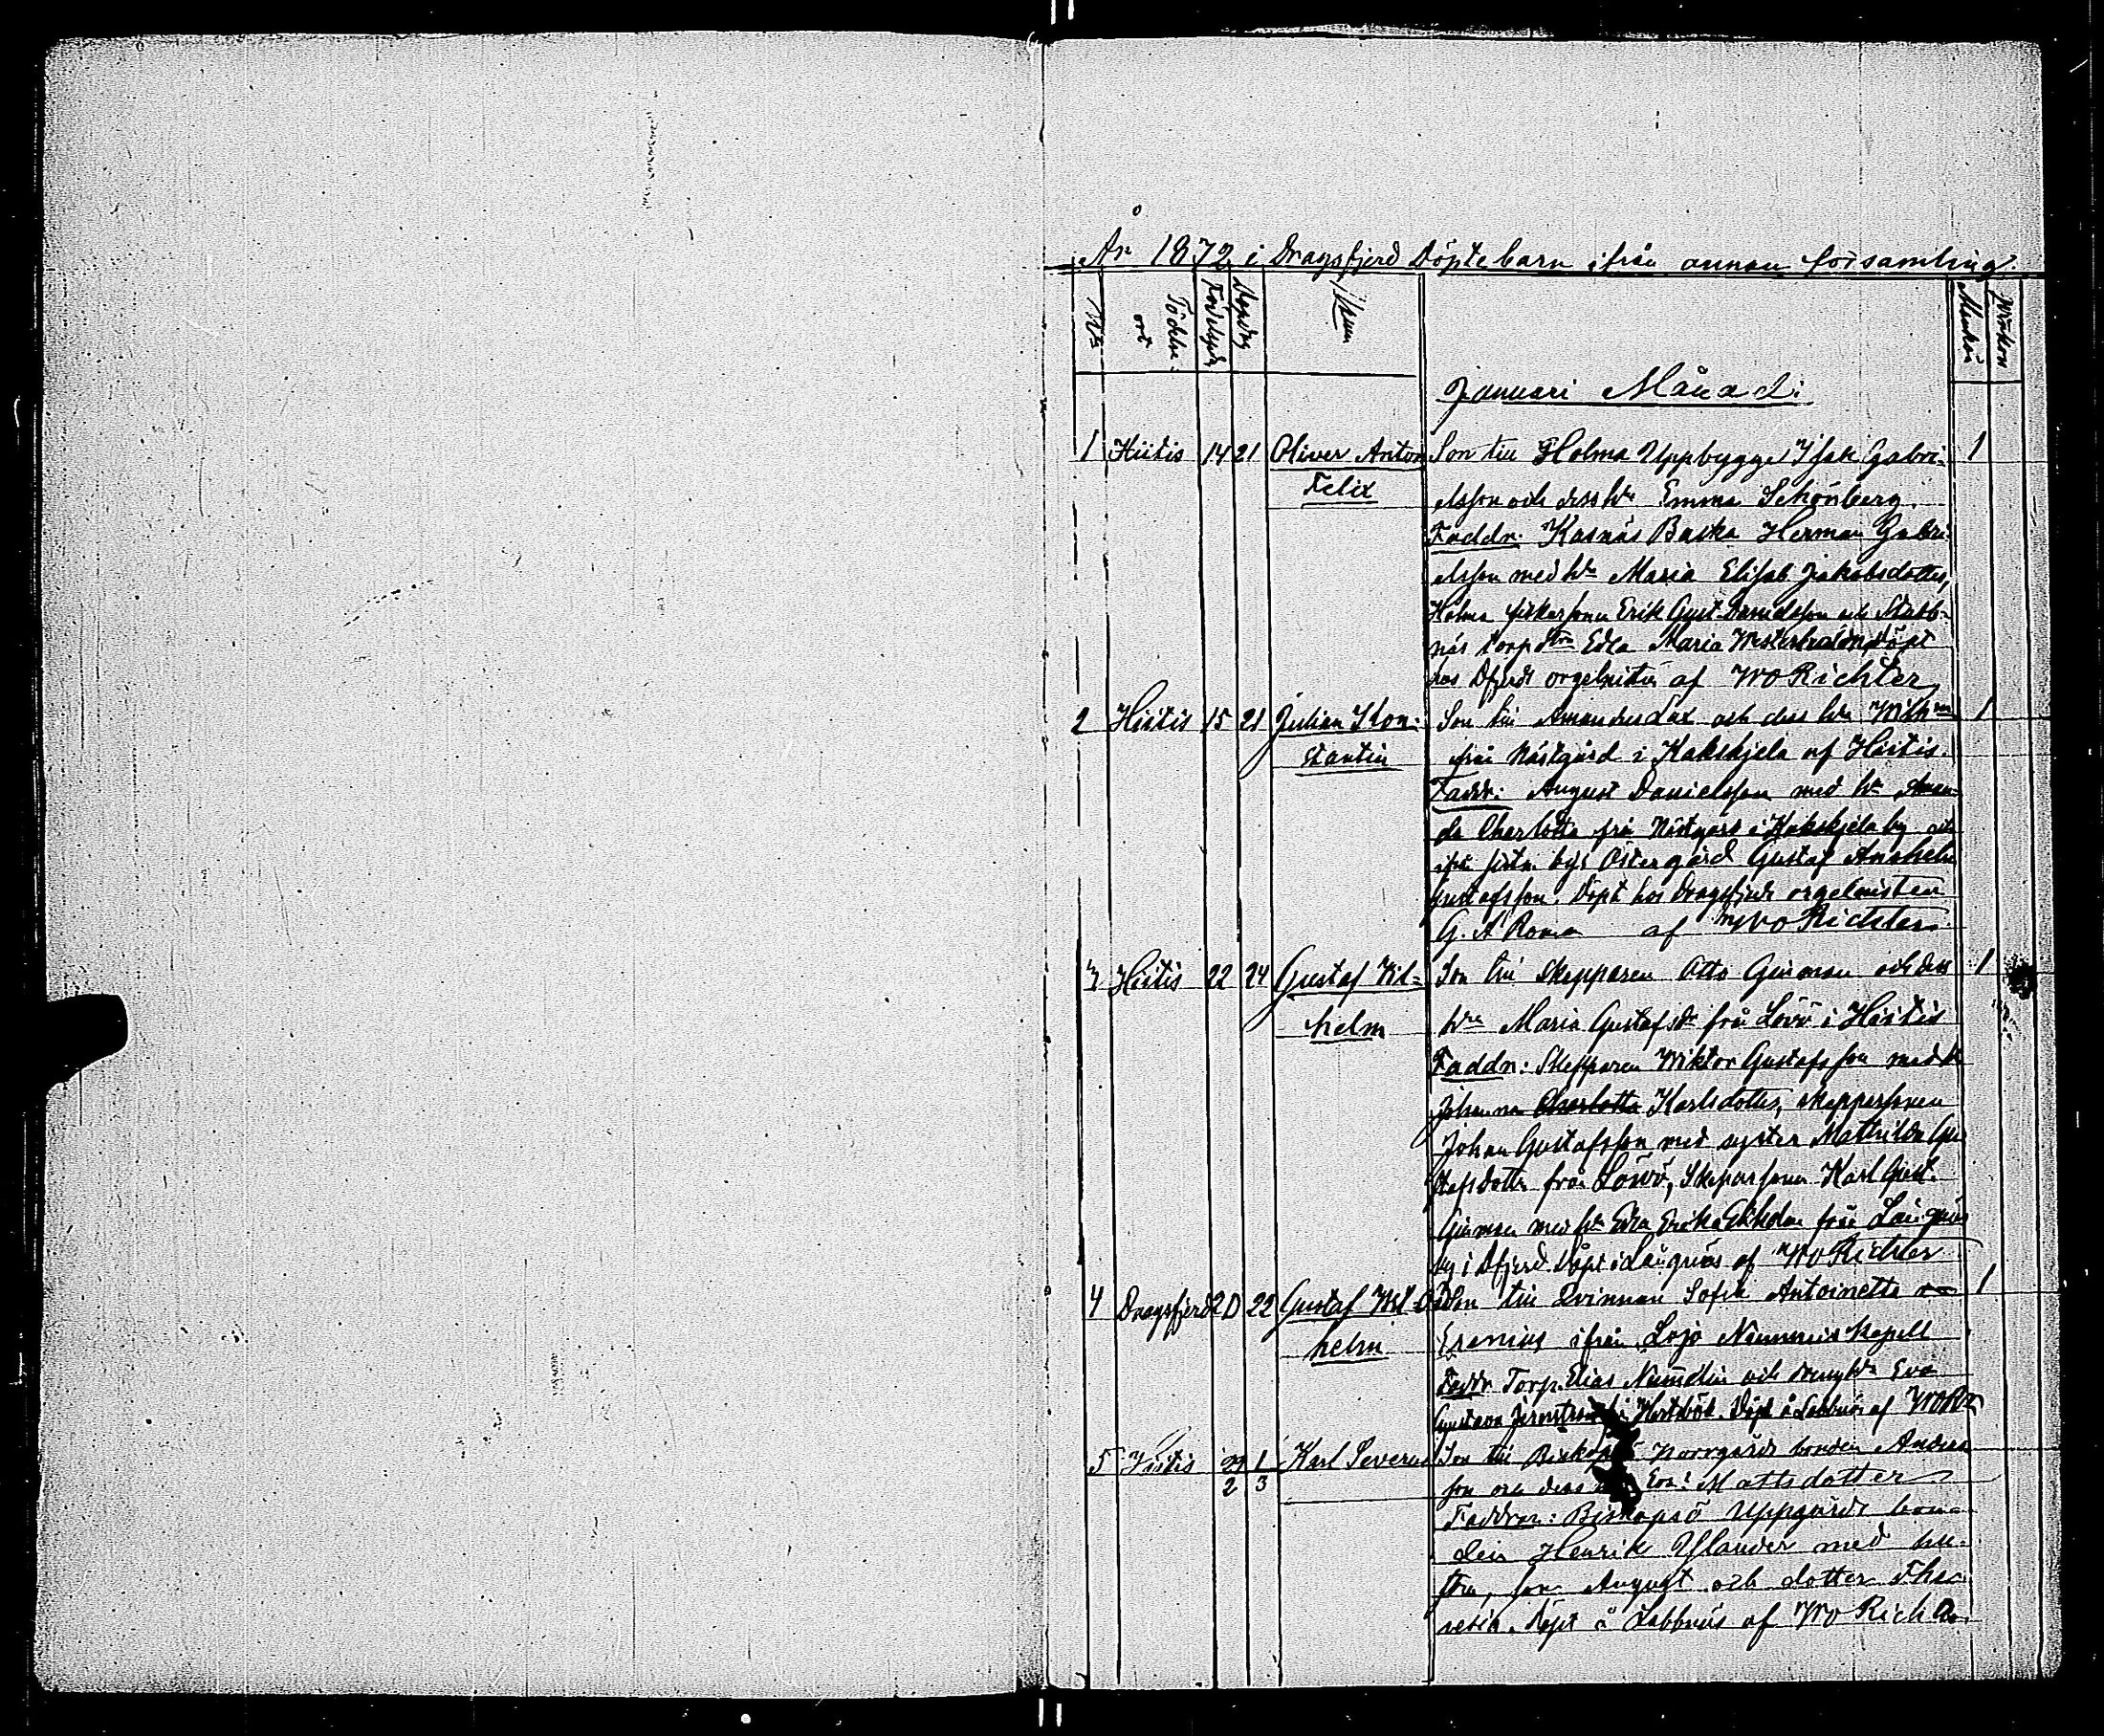 År 1872 i Dragsfjerd Döpte barn ifrån annan församling.
No Födelse ort Födelsedag Dopdag Namn Mankön Qvinkön
Januari Månad:
1 Hiitis 14 21 Oliver Anton Son till Holma Uppbygge Isak Gabri- 1
Felix elsson och dess hu Emma Schönberg.
Faddr. Kasnäs Baska Herman Gabri-
elsson med hu Maria Elisab Jakobsdotter,
Holma Erik Gust Danielsson och Stubb-
näs torp Edla Maria döpt
hos Dfjerds orgelnisten af WO Richter
2 Hiitis 15 21 Julian Kon- Son till Amandus Lax och dess hu Wilhm 1
stantin från Nästgård i Kakskjela af Hiitis.
Faddr: August Danielsson med hu Aman-
da Charlotta från Nästgård i Kakskjela by och
ifrån bys Östergård Gustaf Anshelm
Gustafsson. Döpt hos Dragsfjerds orgelnisten
G. A Roma af WO Richter.
3 Hiitis 22 24 Gustaf Wil- Son till Skepparen Otto Ginman och dess 1
helm hu Maria Gustafsdr från Lövö i Hiitis
Faddr: Skepparen Wiktor Gustafsson med hu
Johanna Charlotta Karlsdotter, skeppssonen
Johan Gustafsson med syster Mathilda Gu-
stafsdotter från Lövö, Skepparsonen Karl Gust.
Ginman med hu Edla Erika från Långnäs
by i Dfjerd. Döpt i Långnäs af WO Richter
4 Dragsfjerd 20 22 Gustaf Wil- Son till Qvinnan Sofia Antoinetta 1
helm Erenius ifrån Lojo Nummis Kapell
Faddr Torp. Elias och Eva
Gustava i Döpt å Labbnäs af WOR
5 Hiitis 29 1 Karl Severin Son till Biskopsö Norrgårds bonden Anders
2 3 son och dess Eva Mattsdotter
Faddrar: Biskopsö Uppgårds bon-
den Henrik Ylander med hu-
stru, son August och dotter The-
resia. Döpt å Labbnäs af WO Rich